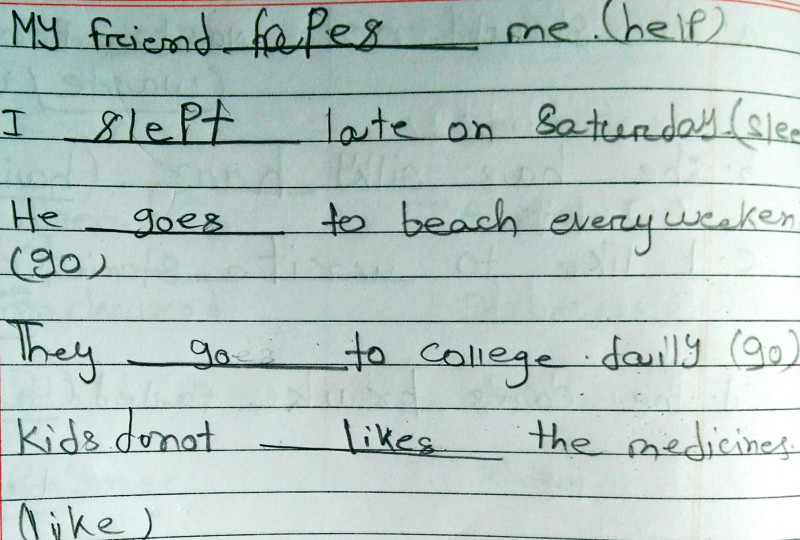 My friend hepes me. (help)
I slept late on Saturday. (slee
He goes to beach every weeken
(go)
They go to college daily (go)
Kids donot likes the medicines.
(like)